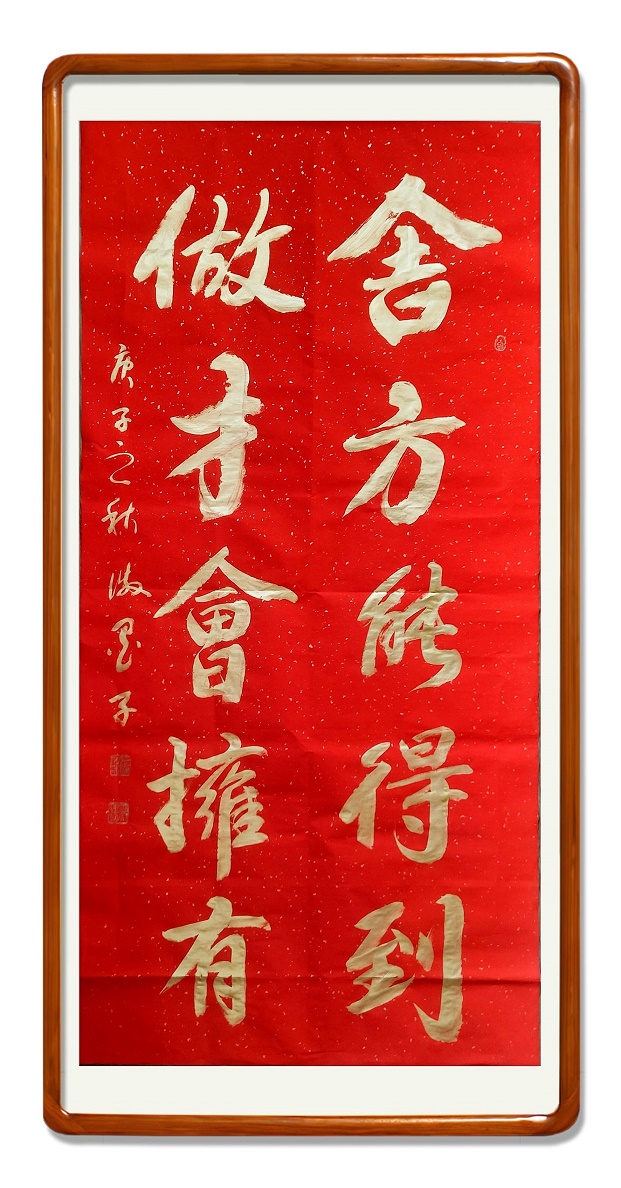 舍方能得到
做才會擁有
庚子之秋 海墨子